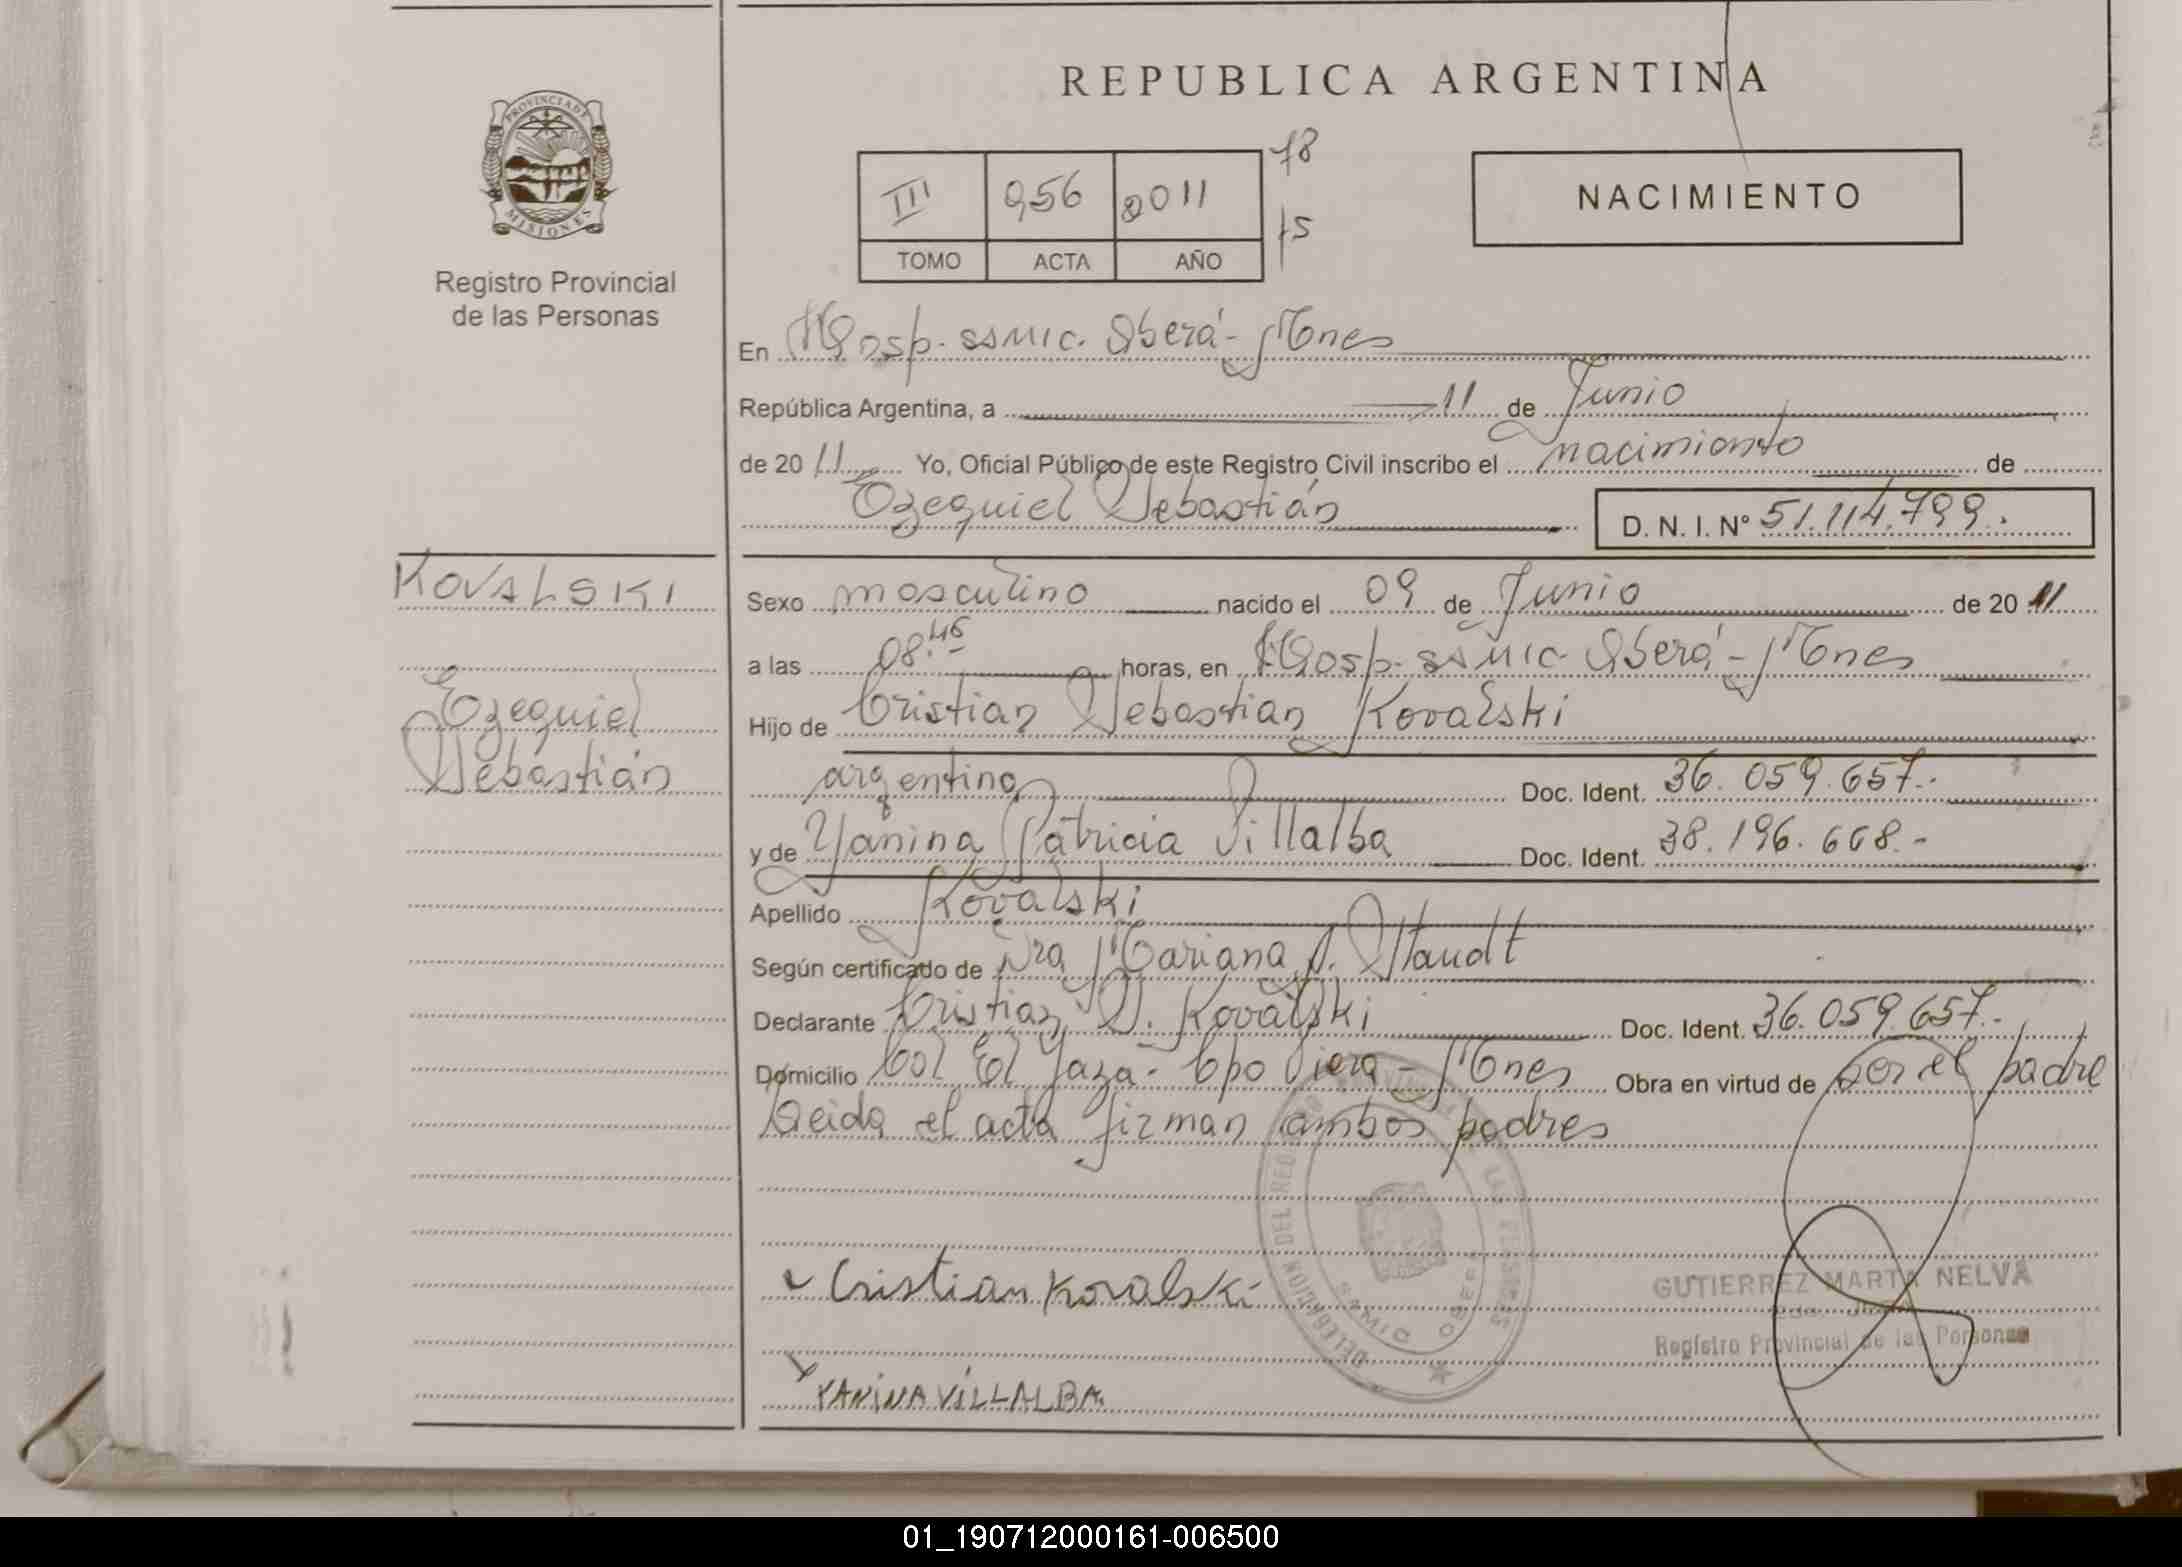 REPUBLICA ARGENTINA
PROVINCIA DE
MISIONES
Registro Provincial
de las Personas
III 956 2011
TOMO ACTA AÑO
78
75
NACIMIENTO
En Hosp. SAMIC. Oberá - Mnes
República Argentina, a 11 de Junio
de 2011 Yo, Oficial Público de este Registro Civil inscribo el nacimiento de
Ezequiel Sebastián D. N. I. N° 51.114.799.
KOVALSKI
Ezequiel
Sebastián
Sexo masculino nacido el 09 de Junio de 2011
a las 08.45 horas, en Hosp. SAMIC Oberá - Mnes
Hijo de Cristian Sebastian Kovalski
argentino Doc. Ident. 36.059.657.-
y de Yanina Patricia Villalba Doc. Ident. 38.196.668.-
Apellido Kovalski
Según certificado de Dra Mariana S. Staudt
Declarante Cristian S. Kovalski Doc. Ident. 36.059.657.-
Domicilio Col El Yaza - Cpo Viera - Mnes Obra en virtud de ser el padre
Leida el acta firman ambos padres
Cristian Kovalski
YANINA VILLALBA
DELEGACION DEL
LAS PERSONAS
SAMIC OBERA
GUTIERREZ MARTA NELVA
Registro Provincial de las Personas
01_190712000161-006500